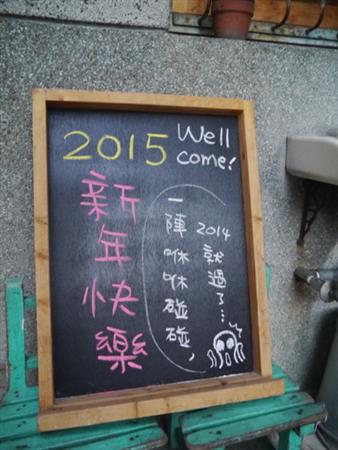 2015
Well
come!
新年快樂
一陣咻咻碰碰，
2014就過了…